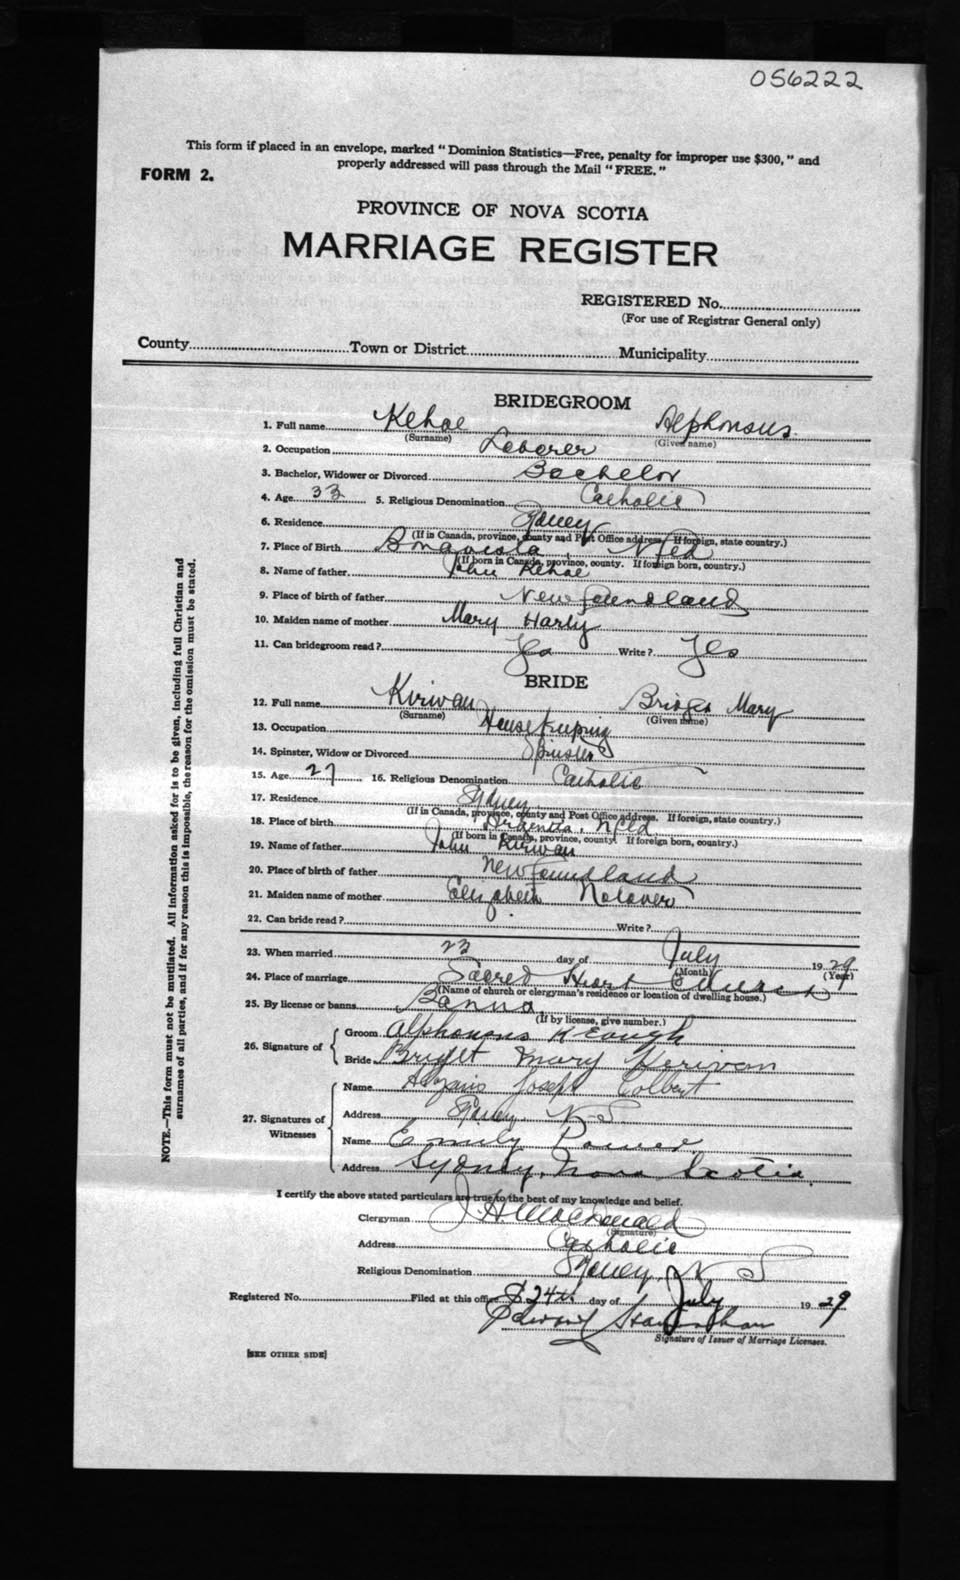 056222
This form if placed in an envelope, marked "Dominion Statistics—Free, penalty for improper use $300," and
properly addressed will pass through the Mail "FREE."
FORM 2.
PROVINCE OF NOVA SCOTIA
MARRIAGE REGISTER
REGISTERED No.
(For use of Registrar General only)
County Town or District Municipality
BRIDEGROOM
1. Full name Kehoe Alphonsus
(Surname) (Given name)
2. Occupation Laborer
3. Bachelor, Widower or Divorced Bachelor
4. Age 33 5. Religious Denomination Catholic
6. Residence Sydney
(If in Canada, province, county and Post Office address. If foreign, state country.)
7. Place of Birth Nfld
(If born in Canada, province, county. If foreign born, country.)
8. Name of father John Kehoe
9. Place of birth of father Newfoundland
10. Maiden name of mother Mary
11. Can bridegroom read? Yes Write? Yes
BRIDE
12. Full name Kirwan Mary
(Surname) (Given name)
13. Occupation Housekeeping
14. Spinster, Widow or Divorced Spinster
15. Age 27 16. Religious Denomination Catholic
17. Residence Sydney
(If in Canada, province, county and Post Office address. If foreign, state country.)
18. Place of birth Argentia, Nfld
(If born in Canada, province, county. If foreign born, country.)
19. Name of father John Kirwan
20. Place of birth of father Newfoundland
21. Maiden name of mother Elizabeth
22. Can bride read? Write?
23. When married 23 day of July 1929
(Month) (Year)
24. Place of marriage Sacred Heart Church
(Name of church or clergyman's residence or location of dwelling house.)
25. By license or banns Banns
(If by license, give number.)
26. Signature of Groom Alphonsus Keough
Bride Mary
27. Signatures of Witnesses Name Joseph Colbert
Address Sydney N-S.
Name Emily Power
Address Sydney, Nova Scotia.
I certify the above stated particulars are true to the best of my knowledge and belief.
Clergyman J. H. MacDonald
(Signature)
Address Catholic
Religious Denomination Sydney, N S
Registered No. Filed at this office 24th day of July 1929
Edward
Signature of Issuer of Marriage Licenses.
[SEE OTHER SIDE]
NOTE.—This form must not be mutilated. All information asked for is to be given, including full Christian and
surnames of all parties, and if for any reason this is impossible, the reason for the omission must be stated.